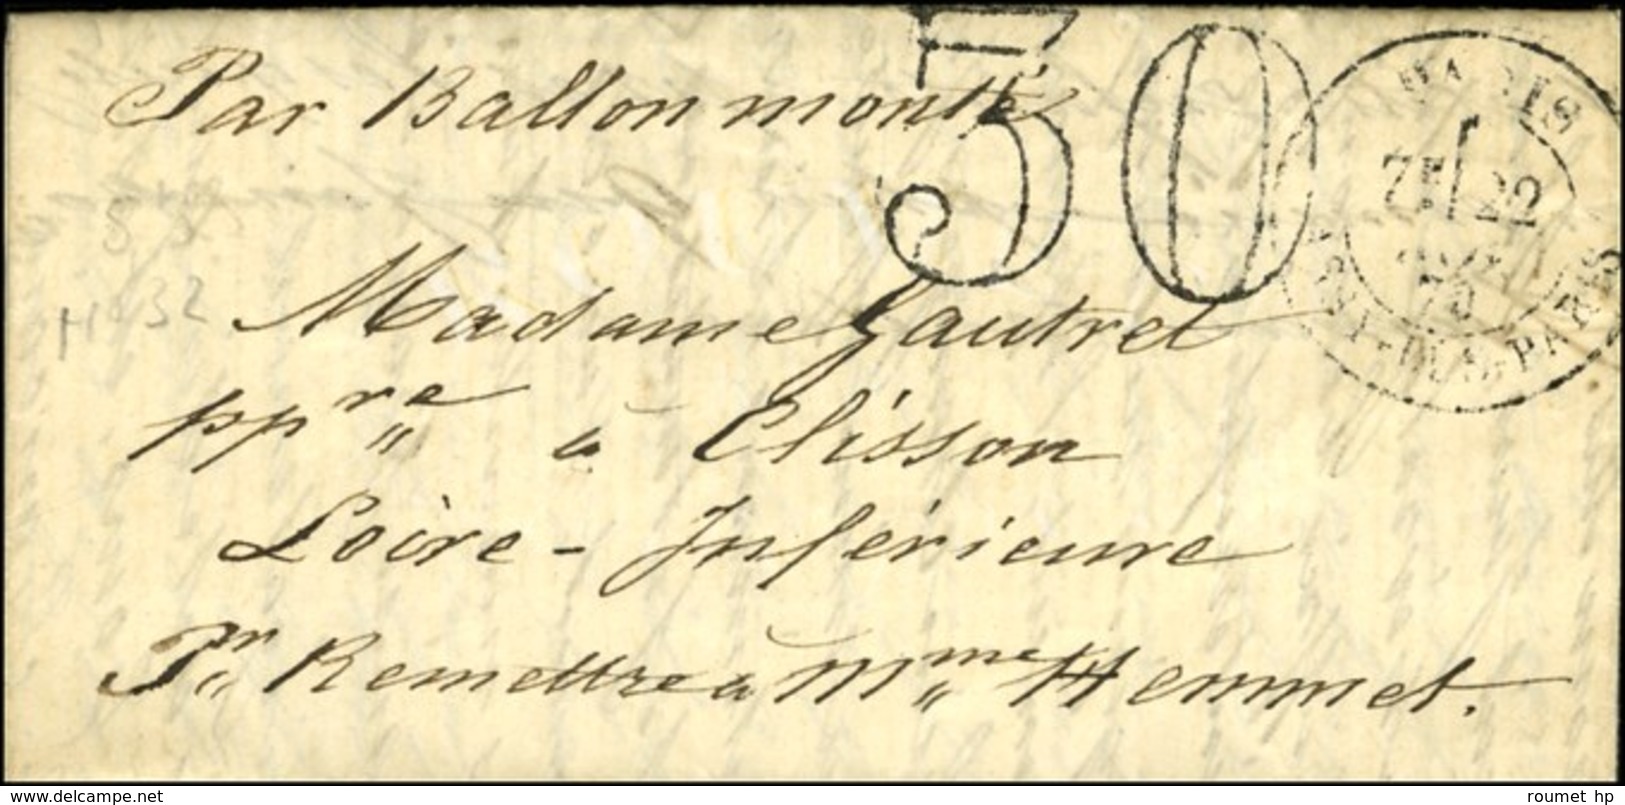 Par Ballon monté
30
PARIS
7E 22
70
PARIS
H 32
Madame Gautret
ppre à Clisson
Loire-Inférieure
Pr Remettre à Mme Hemmet.
www.delcampe.net
roumet hp